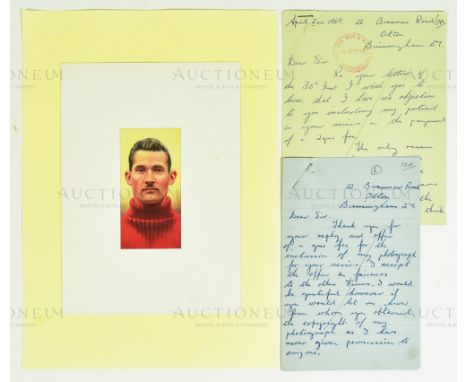 AUCTIONEUM
BRISTOL & BATH AUCTIONEERS
22
Olton
Birmingham 27.
Dear Sir
Re your letter of
the 30th I wish you to
know that I have no objection
to you including my portrait
in your series on the payment
of a 2gns fee.
The only reason
6
22
Olton
Birmingham 27.
Dear Sir.
Thank you for
your reply and offer
of a gns fee for the
inclusion of my photograph
for your series, I accept
the offer in fairness
to the other
I would
be grateful however if
you would let me know
from whom you obtained
the copyright of my
photograph as I have
never given permission to
anyone.